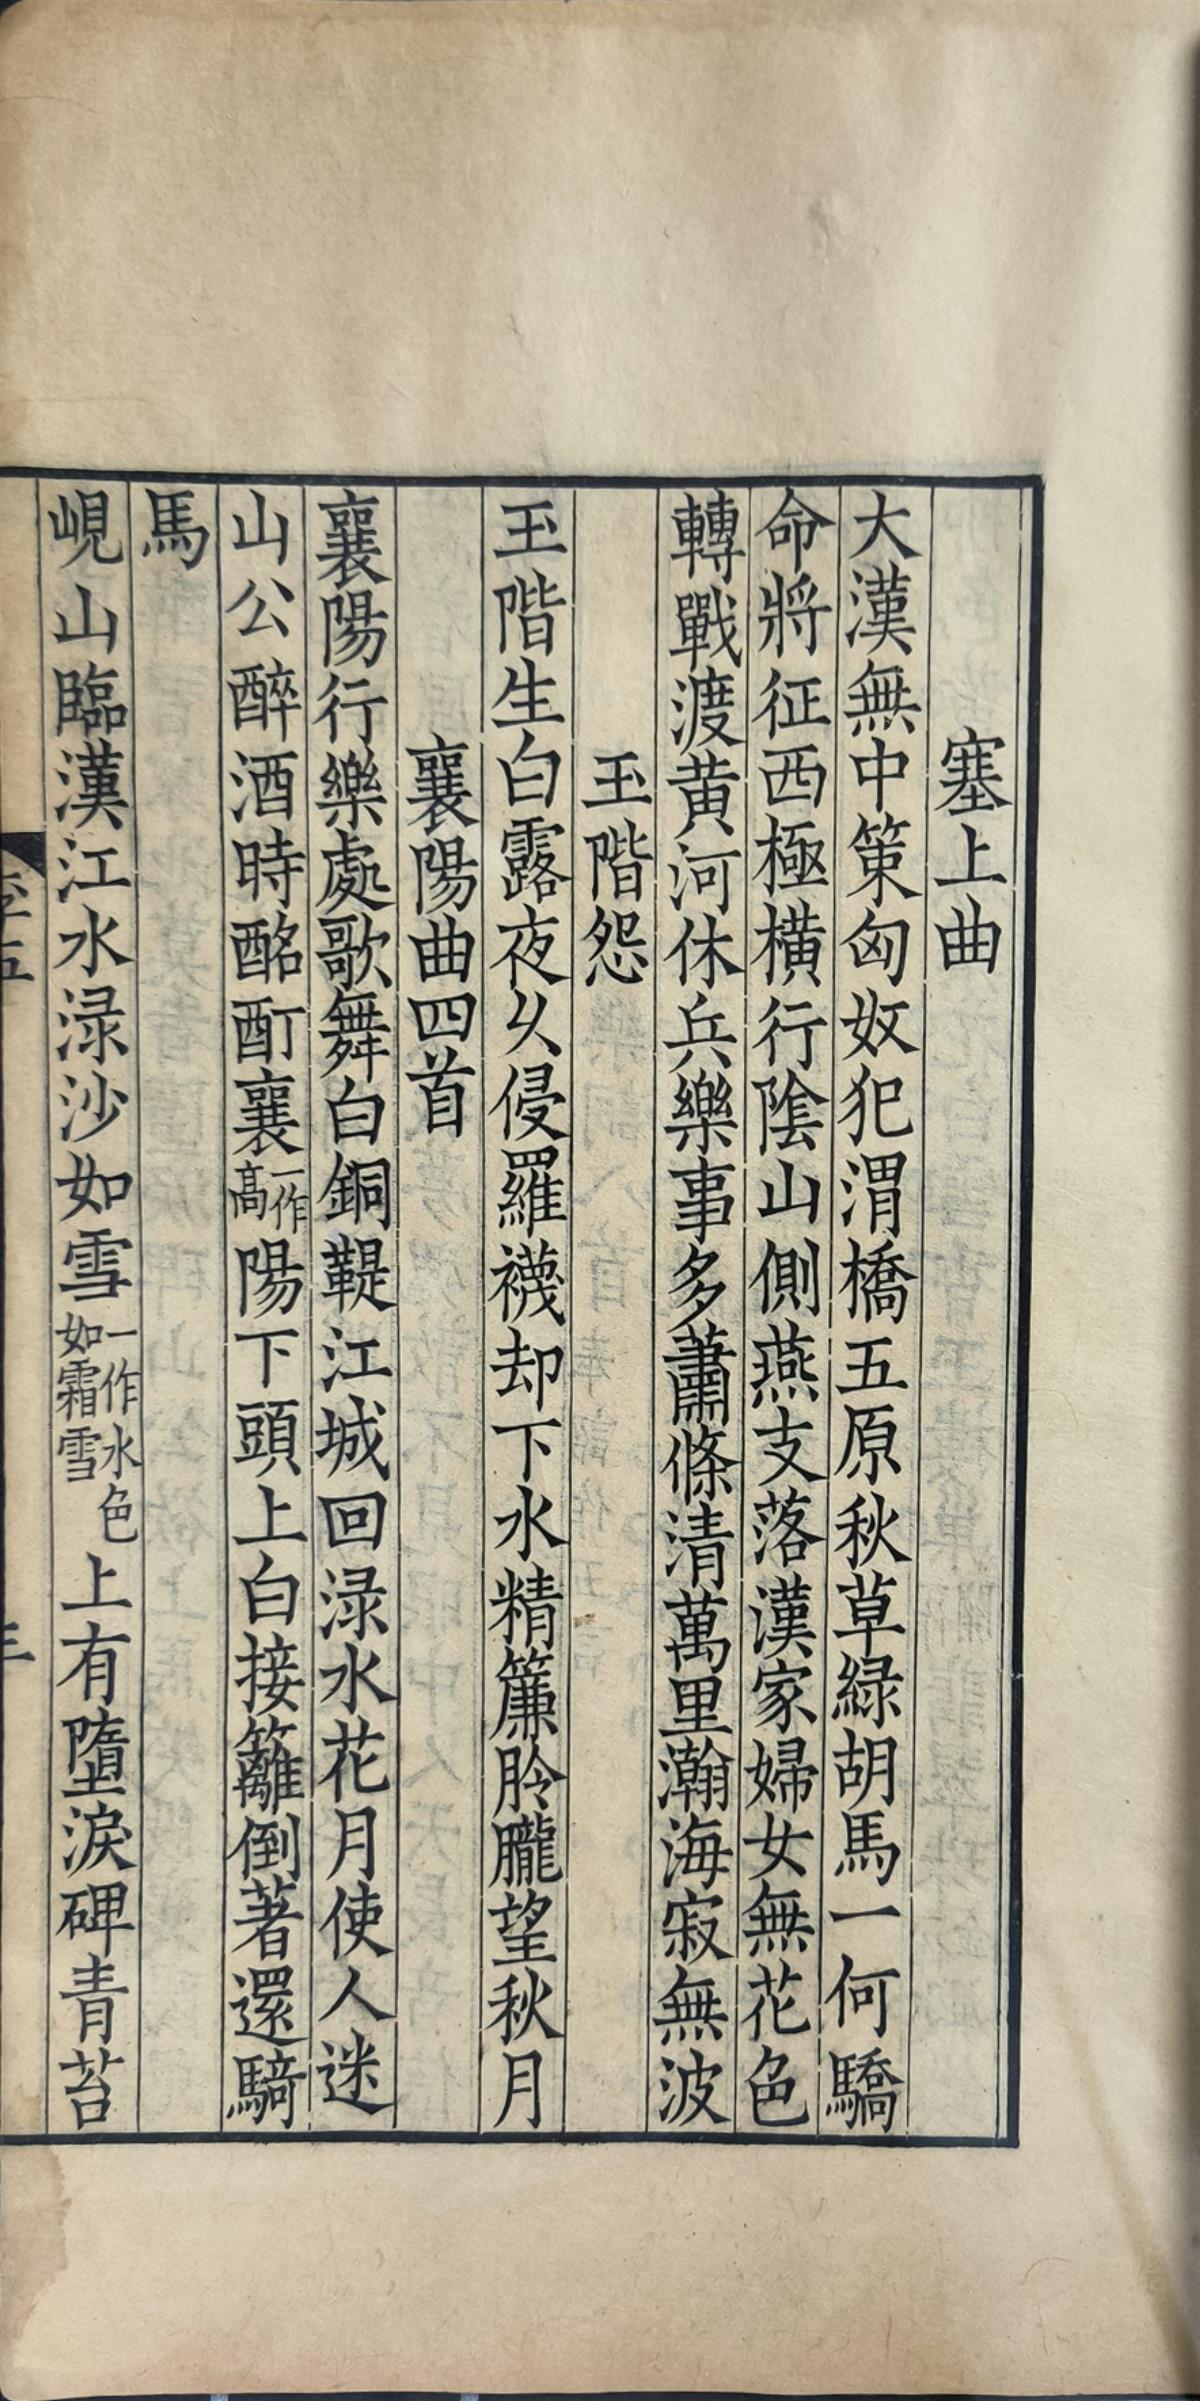 塞上曲
大漢無中策匈奴犯渭橋五原秋草緑胡馬一何驕
命將征西極橫行陰山側燕支落漢家婦女無花色
轉戰渡黄河休兵樂事多蕭條清萬里瀚海寂無波
玉階怨
玉階生白露夜乆侵羅襪却下水精簾朎朧望秋月
襄陽曲四首
襄陽行樂處歌舞白銅鞮江城回渌水花月使人迷
山公醉酒時酩酊襄一作高陽下頭上白接籬倒著還騎
馬
峴山臨漢江水渌沙如雪一作水色如霜雪上有墮淚碑青苔
李五
三